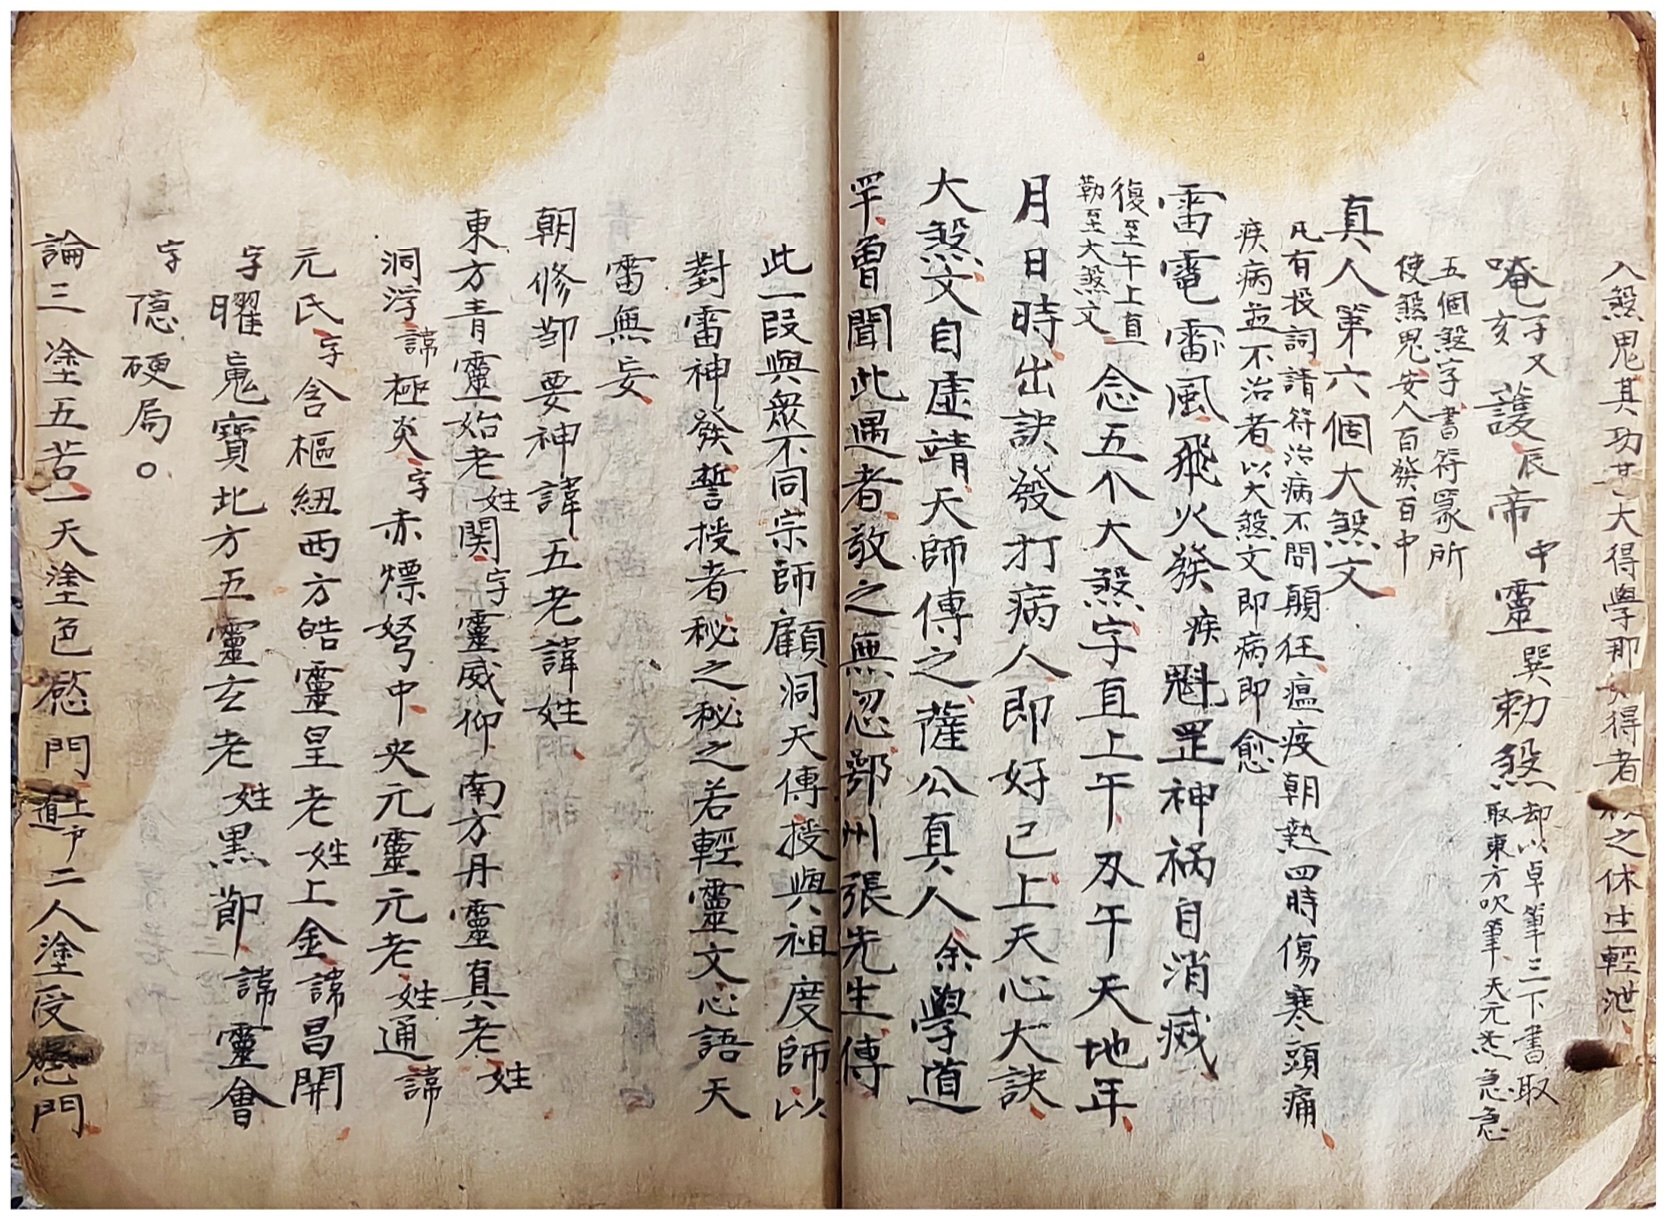 入煞鬼其功甘大得學那如得者秘之休生輕泄
唵子又亥護辰帝中靈巽勅煞却以卓筆三下書取取東方吹筆天元炁急急
五個煞字書符篆所
使煞鬼安人百發百中
真人第六個大煞文
凡有投詞請符治病不問顛狂瘟疫朝熱四時傷寒頭痛
疾病並不治者以大煞文即病即愈
雷電雷風飛火發疾魁罡神禍自消滅
復至午上直
勒至大煞文
念五个大煞字直上午刄午天地年
月日時出訣發打病人即好已上天心大訣
大煞文自虛靖天師傳之薩公真人余學道
罕曾聞此遇者敬之無忽鄂州張先生傳
此一段與眾不同宗師顧洞天傳授與祖度師以
對雷神發誓授者秘之秘之若輕靈文心語天
雷無妄
朝修節要神諱五老諱姓
東方青靈始老姓関字靈威仰南方丹靈真老姓
洞浮諱極炎字赤熛弩中央元靈元老姓通諱
元氏字含樞紐西方皓靈皇老姓上金諱昌開
字曜䰟寶北方五靈玄老姓黒節諱靈會
字隱硬局。
論三塗五苦一天塗色慾門道士二人塗受慾門